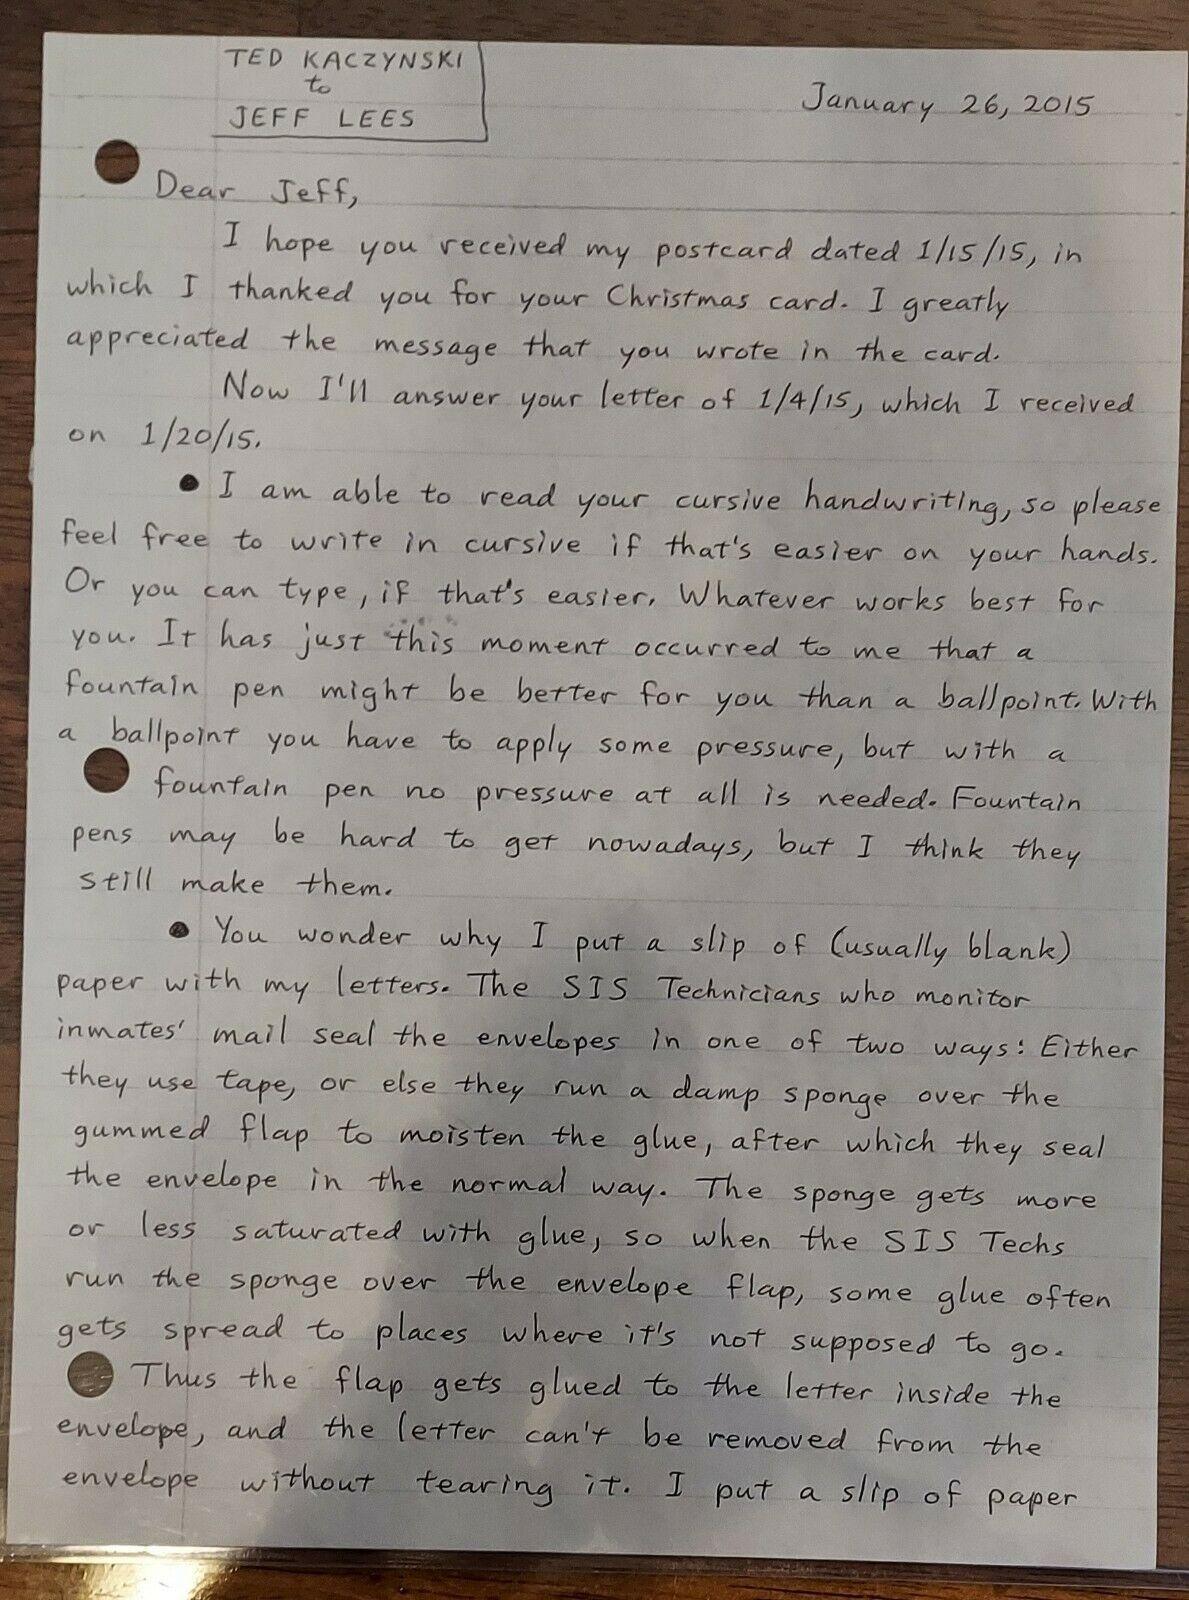 TED KACZYNSKI
to
JEFF LEES
January 26, 2015
Dear Jeff,
I hope you received my postcard dated 1/15/15, in
which I thanked you for your Christmas card. I greatly
appreciated the message that you wrote in the card.
Now I'll answer your letter of 1/4/15, which I received
on 1/20/15.
● I am able to read your cursive handwriting, so please
feel free to write in cursive if that's easier on your hands.
Or you can type, if that's easier. Whatever works best for
you. It has just this moment occurred to me that a
fountain pen might be better for you than a ballpoint. With
a ballpoint you have to apply some pressure, but with a
fountain pen no pressure at all is needed. Fountain
pens may be hard to get nowadays, but I think they
still make them.
● You wonder why I put a slip of (usually blank)
paper with my letters. The SIS Technicians who monitor
inmates' mail seal the envelopes in one of two ways: Either
they use tape, or else they run a damp sponge over the
gummed flap to moisten the glue, after which they seal
the envelope in the normal way. The sponge gets more
or less saturated with glue, so when the SIS Techs
run the sponge over the envelope flap, some glue often
gets spread to places where it's not supposed to go.
Thus the flap gets glued to the letter inside the
envelope, and the letter can't be removed from the
envelope without tearing it. I put a slip of paper